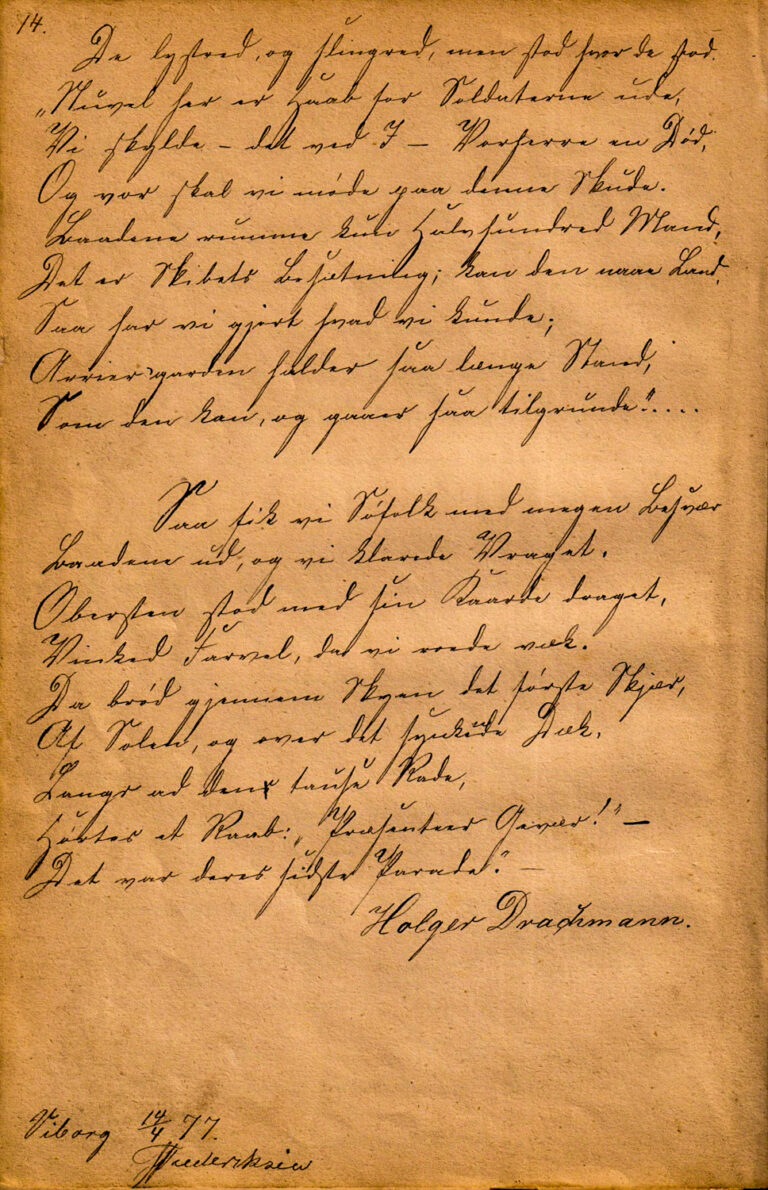 14.
De lystred, og slingred, men stod hvor de stod.
„Nuvel her er Haab for Soldaterne ude,
Vi skylde – det ved I – Vorherre en Død,
Og vor skal vi møde paa denne Skude.
Baadene rumme kun Halvhundred Mand,
Det er Skibets Besætning; kan den naae Land,
Saa har vi gjort hvad vi kunde;
Arriergarden holder saa længe Stand,
Som den kan, og gaaer saa tilgrunde“....
Saa fik vi Søfolk med megen Besvær
Baadene ud, og vi klarede Vraget.
Obersten stod med sin Kaarde draget,
Vinked Farvel, da vi roede væk.
Da brød gjennem Skyen det første Skjær,
Af Solen, og over det synkende Dæk,
Langs ad den tause Rade,
Hørtes et Raab: „Præsenteer Gevær!“ –
Det var deres sidste Parade.“ –
Holger Drachmann.
Viborg 14/4 77.
Frederiksen